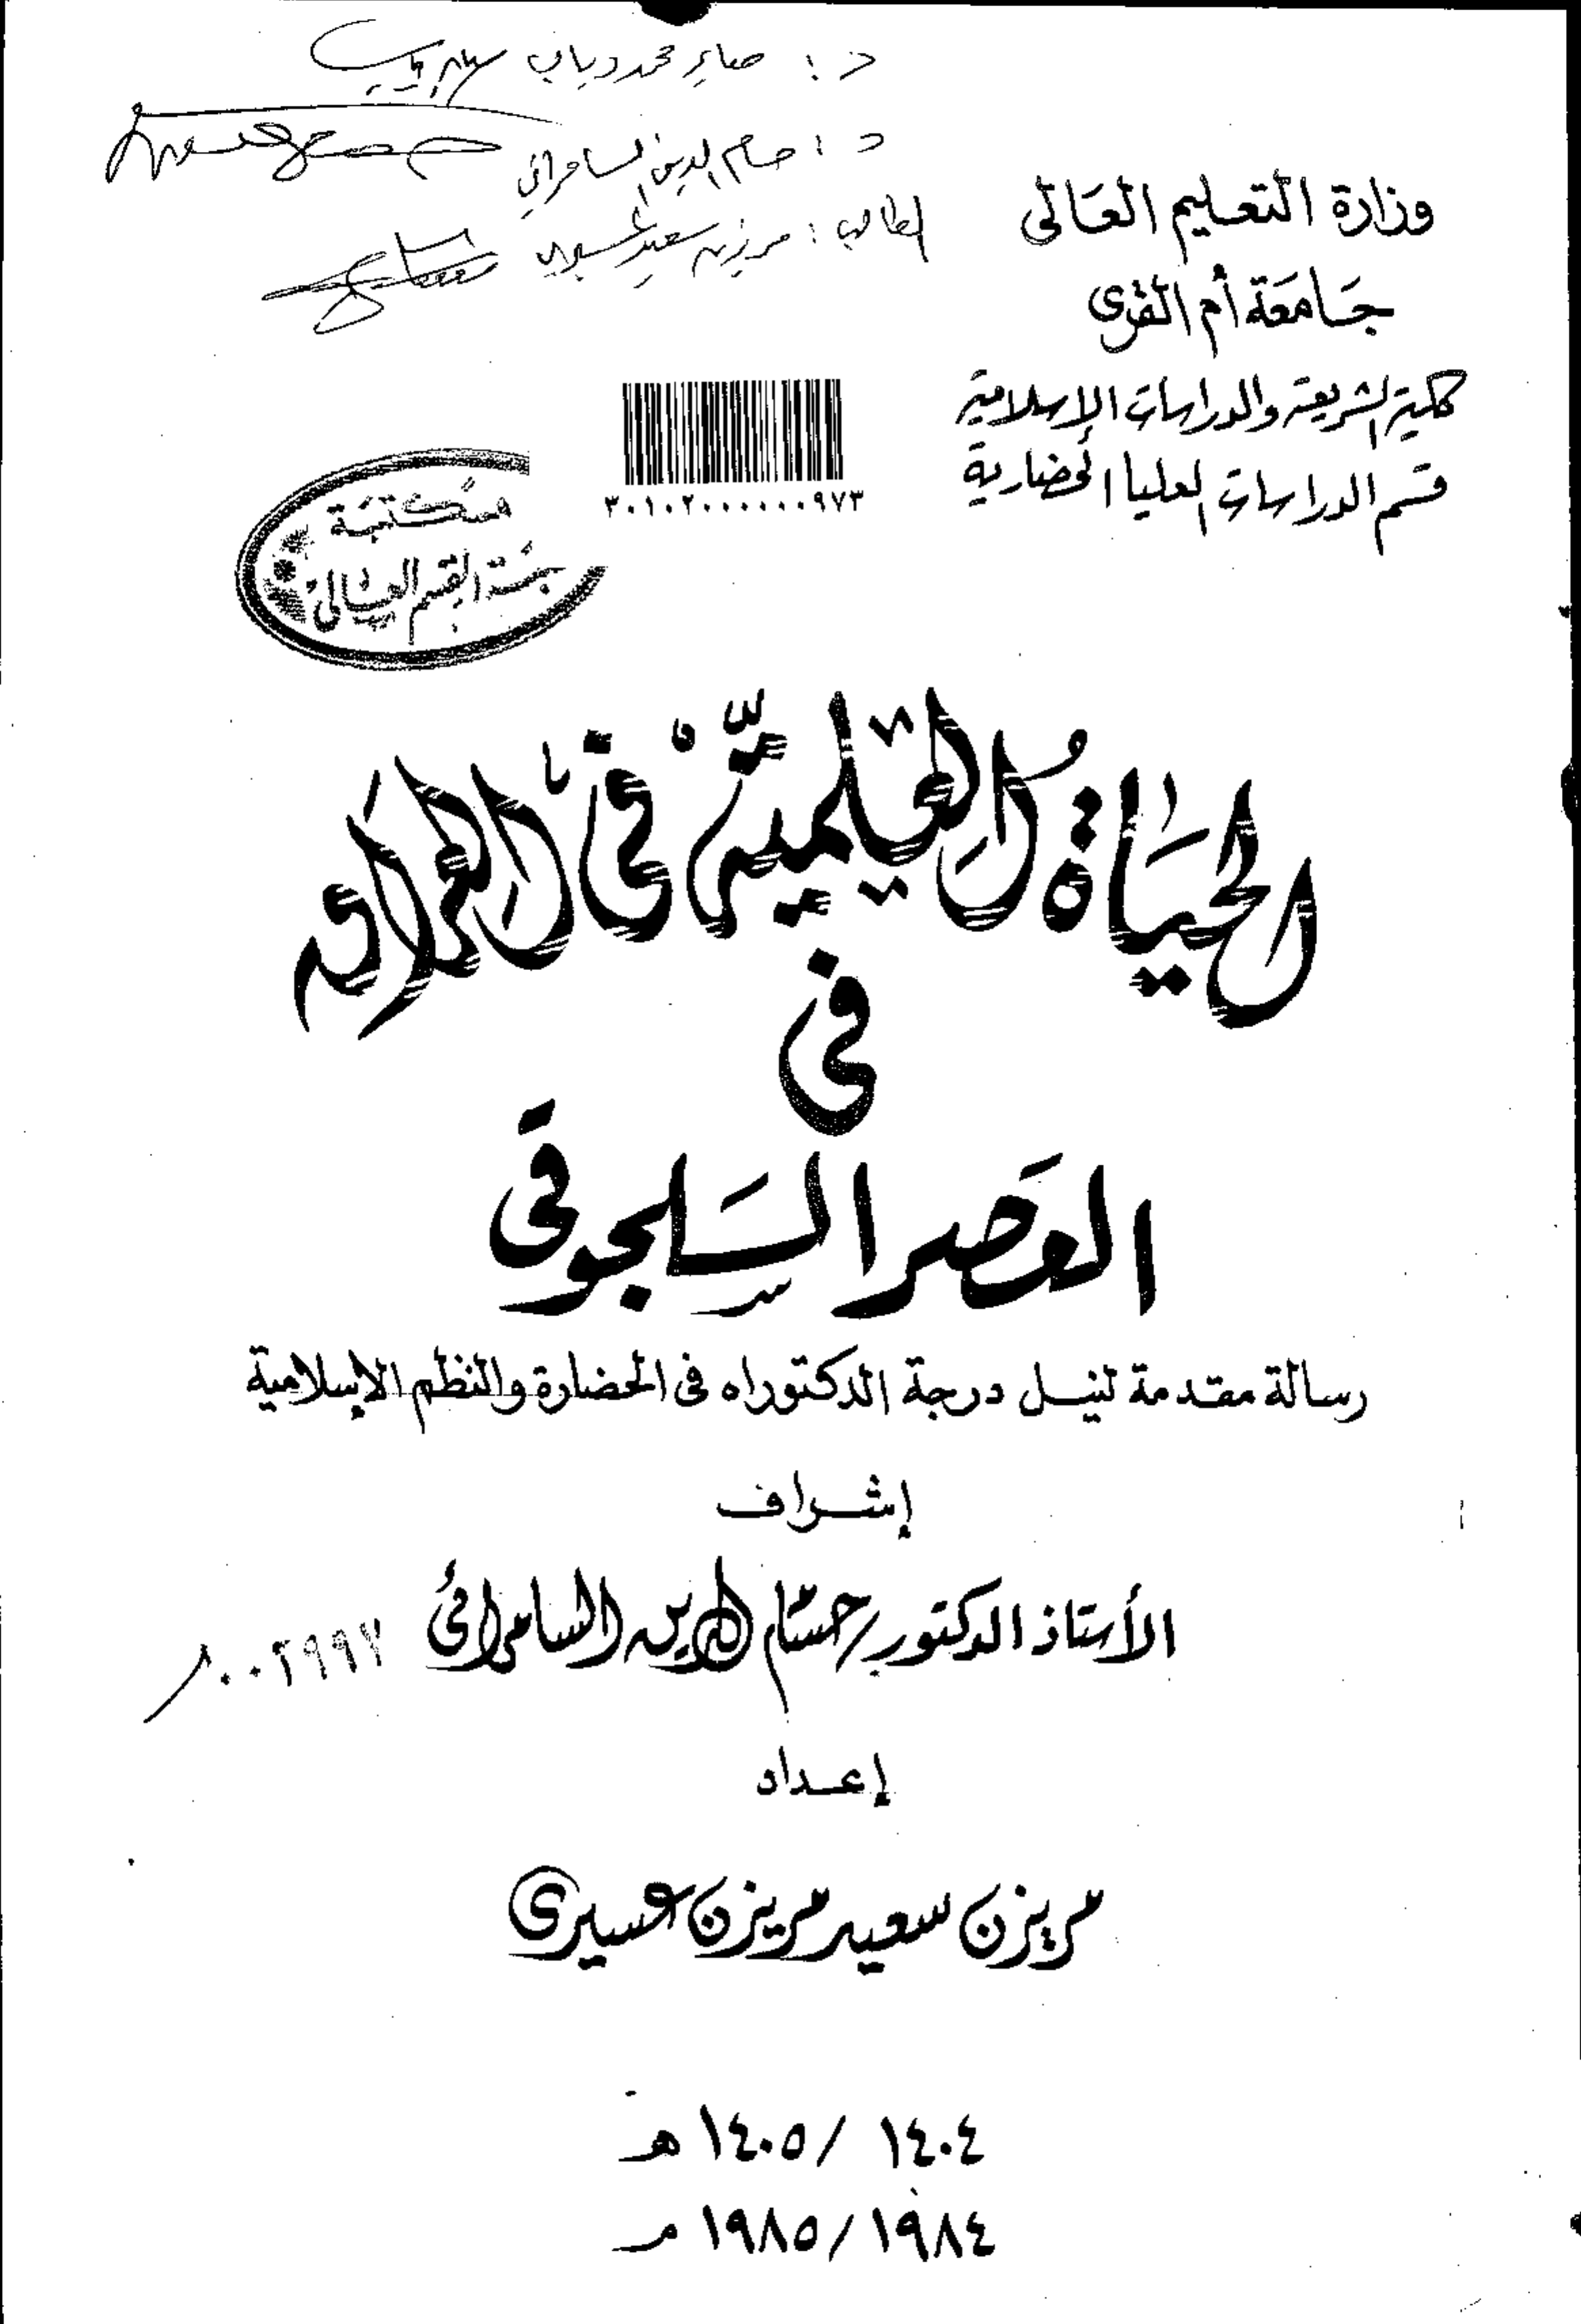 د : صابر محمد دياب
د : حسام الدين السامرائي
الطالب : مريزن سعيد عسيري
وزارة التعليم العالى
جَامعَة أم القرى
كلية الشريعة والدراسات الإسلامية
قسم الدراسات العليا الحضارية
٣٠١٠٢٠٠٠٠٠٠٩٧٣
مكتبة
القسم العالى
الحيَاةُ العِلميَّةْ فىْ العِرَاق
فى
العَصر السَلجوقى
رسالة مقدمة لنيل درجة الدكتوراه فى الحضارة والنظم الإسلامية
إشراف
الأستاذ الدكتور/ حسَام الدين السامرائى
٨٠٠٢٩٩٧
إعداد
مريزن سعيد مريزن عسيرى
١٤٠٤ / ١٤٠٥ هـ
١٩٨٤ / ١٩٨٥ م